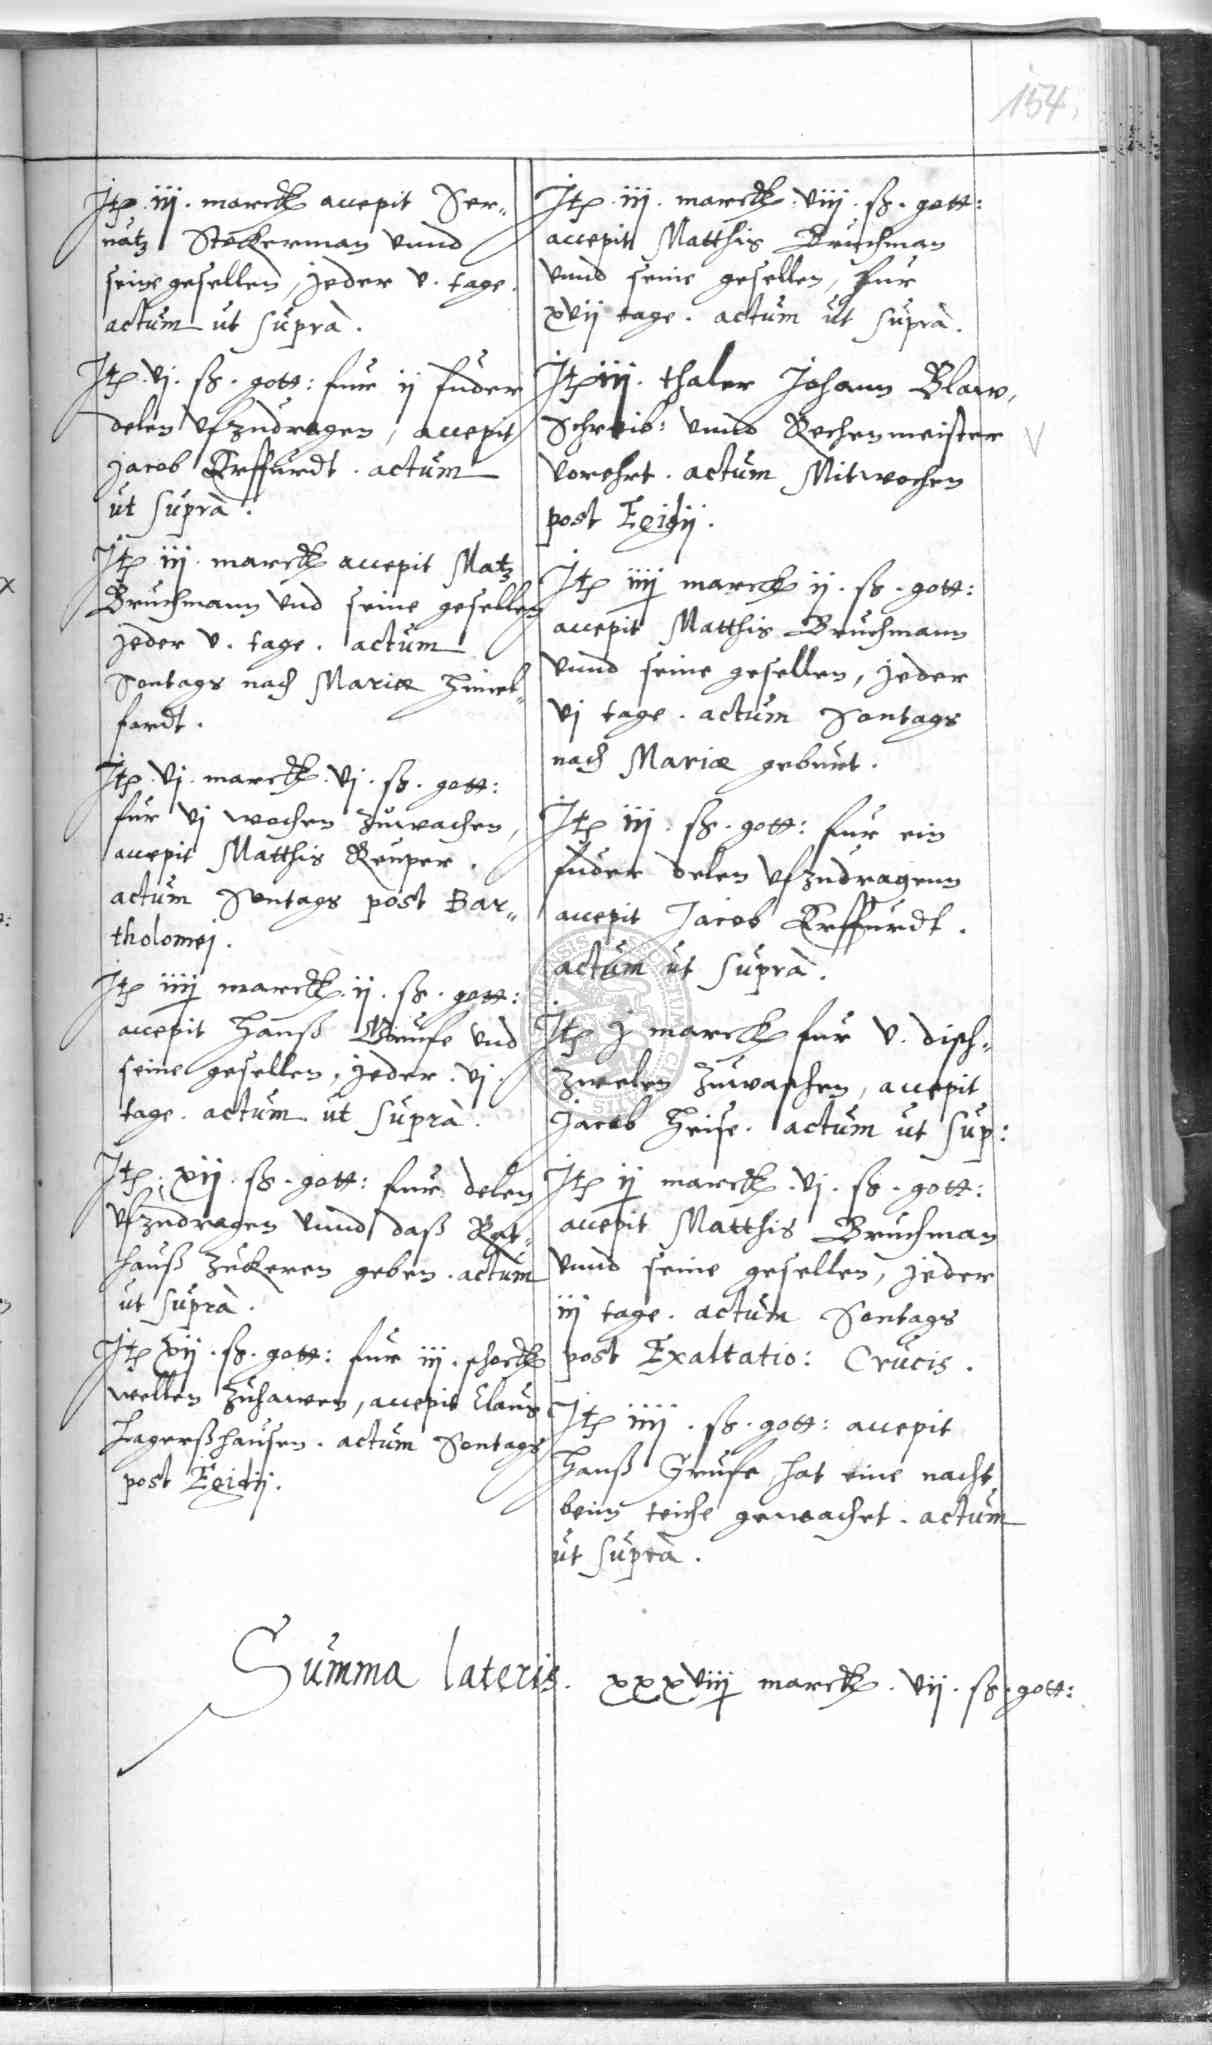 154.
Itē. iij. marck accepit Ser-
natz Stockerman vnnd
seine gesellen, jeder v. tage.
actum ut suprà.
Itē. vj. ß. gott: fur ij fuder
delen vfzudragen, accepit
Jacob Erffurdt. actum
ut suprà.
Itē iij. marck accepit Matz
Bruchmann vnd seine gesellen
jeder v. tage. actum
Sontags nach Mariæ himel-
fardt.
Itē. vj. marck. vj. ß. gott:
fur vj wochen zuwachen,
accepit Matthis Reuper.
actum Sontags post Bar-
tholomej.
Itē iiij marck. ij. ß. gott:
accepit Hanß Grufe vnd
seine gesellen, jeder. vj.
tage. actum ut suprà.
Itē. xij. ß. gott: fur delen
vfzudragen vnnd daß Rat-
hauß zukeren geben. actum
ut suprà.
Itē xij. ß. gott: fur iij. schock
wellen zuhawen, accepit Claus
Hagerßhausen. actum Sontags
post Egidij.
Itē. iij. marck. viij. ß. gott:
accepit Matthis Bruchman
vnnd seine gesellen, fur
xvij tage. actum ut suprà.
Itē iij. thaler Johann Blaw,
Schreib: vnnd Rechenmeister
vorehrt. actum Mitwochen
post Egidij.
Itē iiij marck ij. ß. gott:
accepit Matthis Bruchmann
vnnd seine gesellen, jeder
vj tage. actum Sontags
nach Mariæ geburt.
Itē iij. ß. gott: fur ein
fuder delen vfzudragenn
accepit Jacob Erffurdt.
actum ut suprà.
Itē j marck fur v. disch-
zwelen zuwaschen, accepit
Jacob Heise. actum ut sup:
Itē ij marck. vj. ß. gott:
accepit Matthis Bruchman
vnnd seine gesellen, jeder
iij tage. actum Sontags
post Exaltatio: Crucis.
Itē iiij. ß. gott: accepit
Hanß Grufe, hat eine nacht
beim teiche gewachet. actum
ut suprà.
Summa lateris. xxxviij marck. vij. ß. gott: